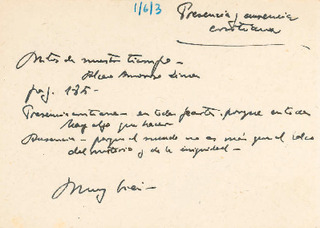 1/6/3
Presencia y ausencia
cristiana
Mitos de nuestro tiempo -
pag. 185 -
Presencia cristiana - en todas partes. porque en todas
hay algo que hacer
Ausencia - porque el mundo no es más que el
del misterio y de la iniquidad -
Muy bien -